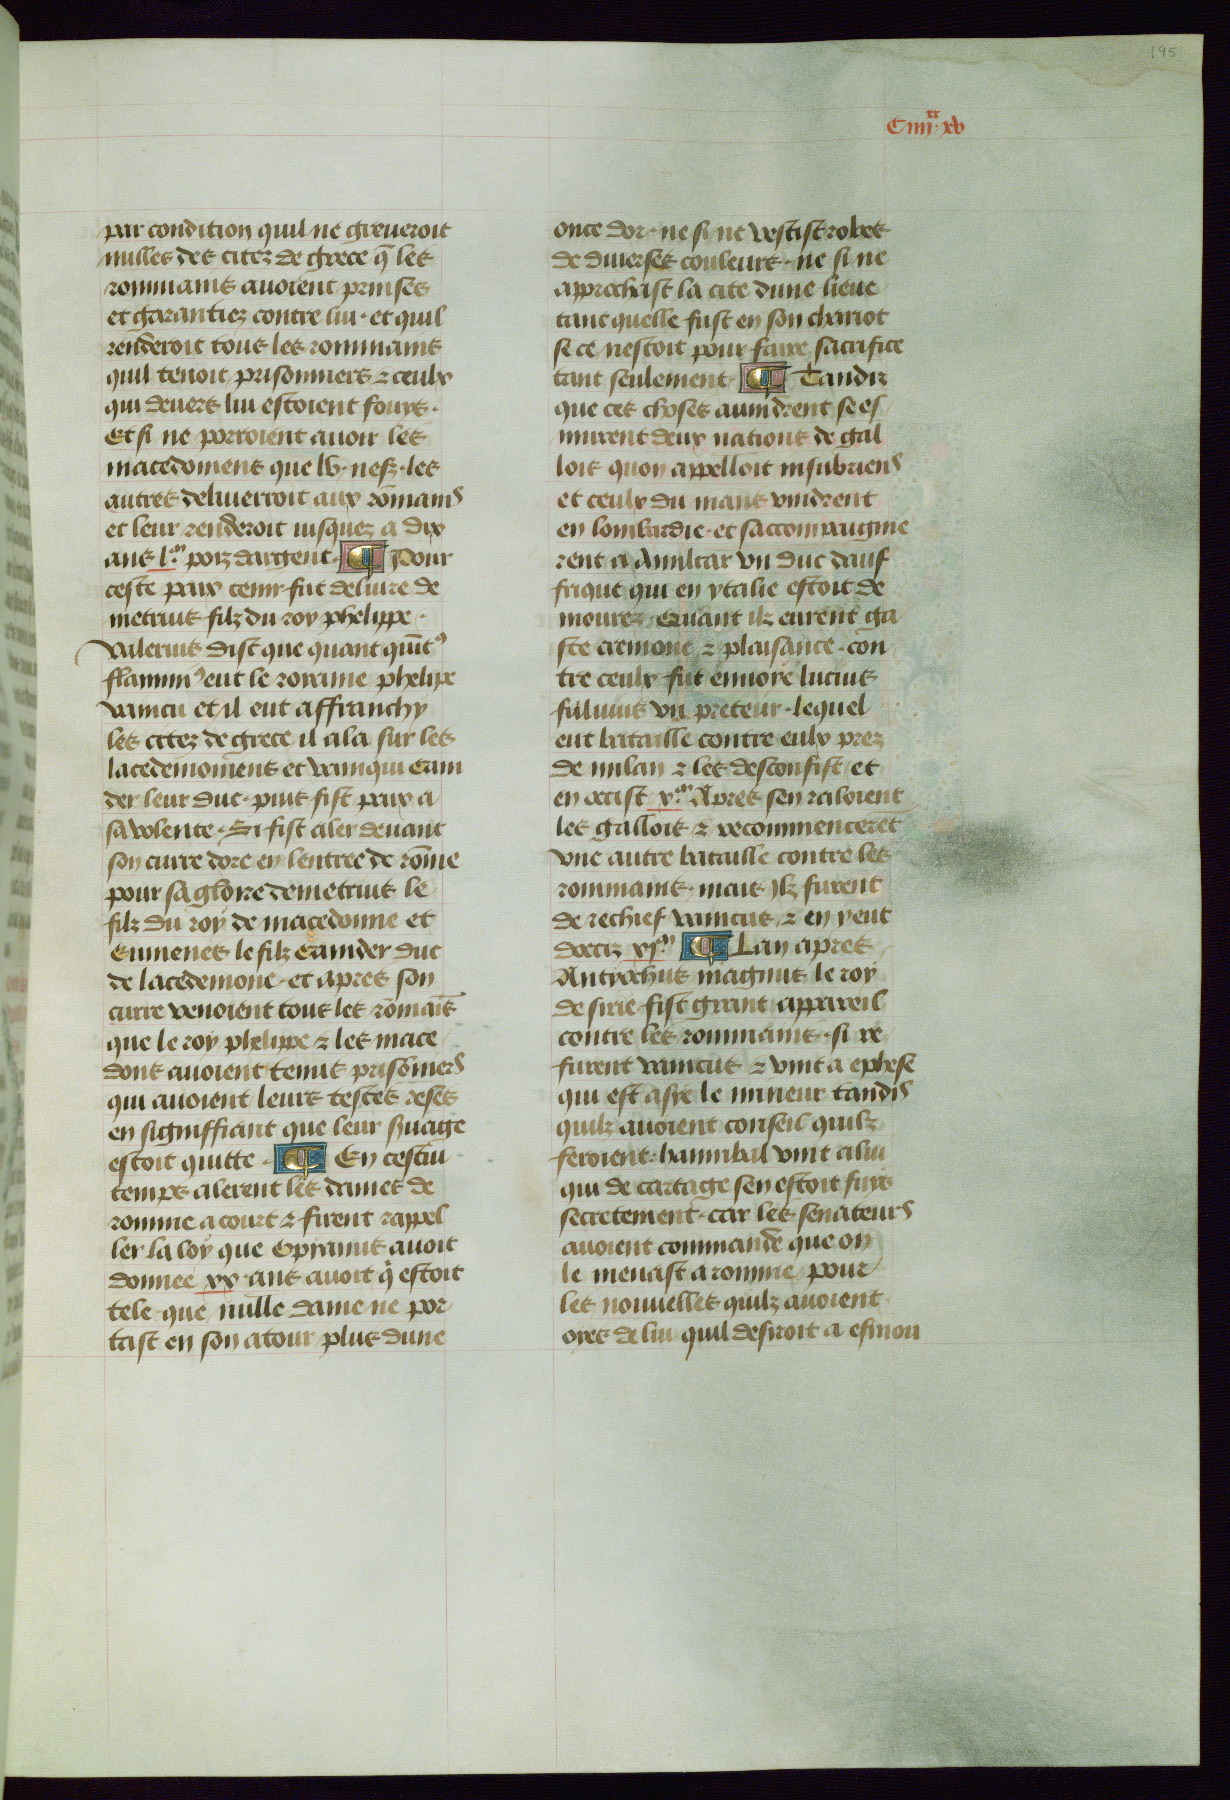 195
Ciiii·xx xv
par condition quil ne greueroit
nulles des citez de grece q̄ les
rommains auoient prinses
et garantiez contre lui · et quil
renderoit tous les rommains
quil tenoit prisonniers ⁊ ceulx
qui deuers lui estoient fouys ·
Et si ne porroient auoir les
macedoniens que lv · nefz · les
autres deliuerroit aux rōmains
et leur renderoit iusquez a dix
ans l.m poiz dargent · ¶ Pour
ceste paix tenir fut deliure de
metrius filz du roy phelippe ·
valerius dist que quant quīt9
flamini9 eut le royaume phelipe
vaincu et il eut affranchy
les citez de grece il ala sur les
lacedemoniens et vainqui Eaui
der leur duc · puis fist paix a
sa volente · Si fist aler deuant
son curre dore en lentree de rōme
pour sa gloire demetrius le
filz du roy de macedonne et
Enmenes le filz Eauider duc
de lacedemone · et apres son
curre venoient tous les rōmaīs
que le roy phelippe ⁊ les mace
dons auoient tenus prisōniers
qui auoient leurs testes reses
en signiffiant que leur seruage
estoit quitte · ¶ En cestui
temps alerent les dames de
romme a court ⁊ firent rappel
ler la loy que Opyanus auoit
donnee xx · ans auoit q̄ estoit
tele que nulle dame ne por
tast en son atour plus dune
once dor · ne si ne vestist robes
de diuerses couleurs · ne si ne
approchast la cite dune lieue
tant quelle fust en son chariot
se ce nestoit pour faire sacrifice
tant seulement · ¶ Tandiz
que ces choses auindrent se es
murent deux nations de gal
lois quon appelloit insubriens
et ceulx du mans vindrent
en lombardie · et saccompaignie
rent a Amilcar vn duc dauf
frique qui en ytalie estoit de
mourez · Quant ilz eurent ga
ste cremone ⁊ plaisance · con
tre ceulx fut enuoye lucius
fuluius vn preteur · lequel
eut bataille contre eulx prez
de milan ⁊ les desconfist et
en occist x.m Apres sen raloient
les gallois ⁊ recommencerēt
vne autre bataille contre les
rommains · mais ilz furent
de rechief vaincus ⁊ en y eut
docciz xi.m ¶ Lan apres
Antyochus magnus le roy
de sirie fist grant appareil
contre les rommains · si re
furent vaincus ⁊ vint a ephese
qui est asye le mineur tandis
quilz auoient conseil quilz
feroient · hannibal vint a lui
qui de cartage sen estoit fuys
secretement · car les senateurs
auoient commande que on
le menast a romme pour
les nouuelles quilz auoient
oyes de lui quil desiroit a esmou